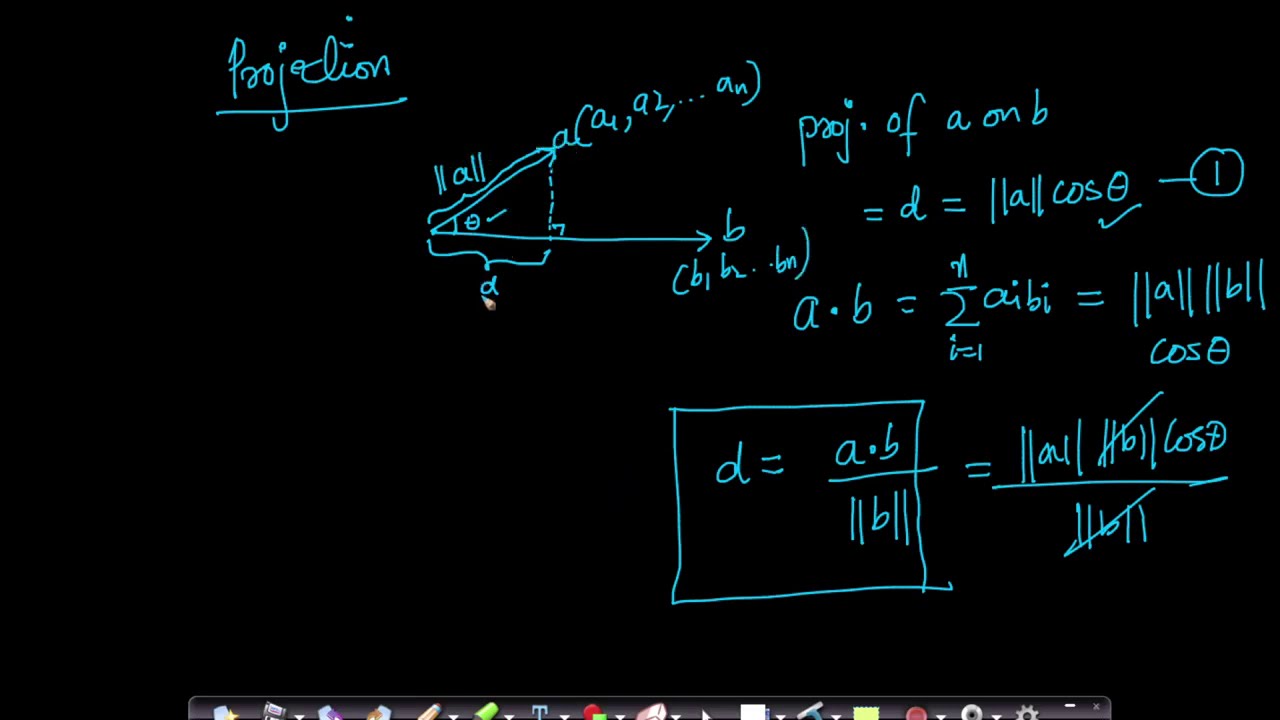 Projection
a(a1, a2, ... an)
||a||
θ
b
(b1, b2 .. bn)
d
proj. of a on b
= d = ||a|| cosθ — 1
a · b = n∑i=1 aibi = ||a|| ||b||
cosθ
d = a·b / ||b|| = ||a|| ||b|| cosθ / ||b||
T